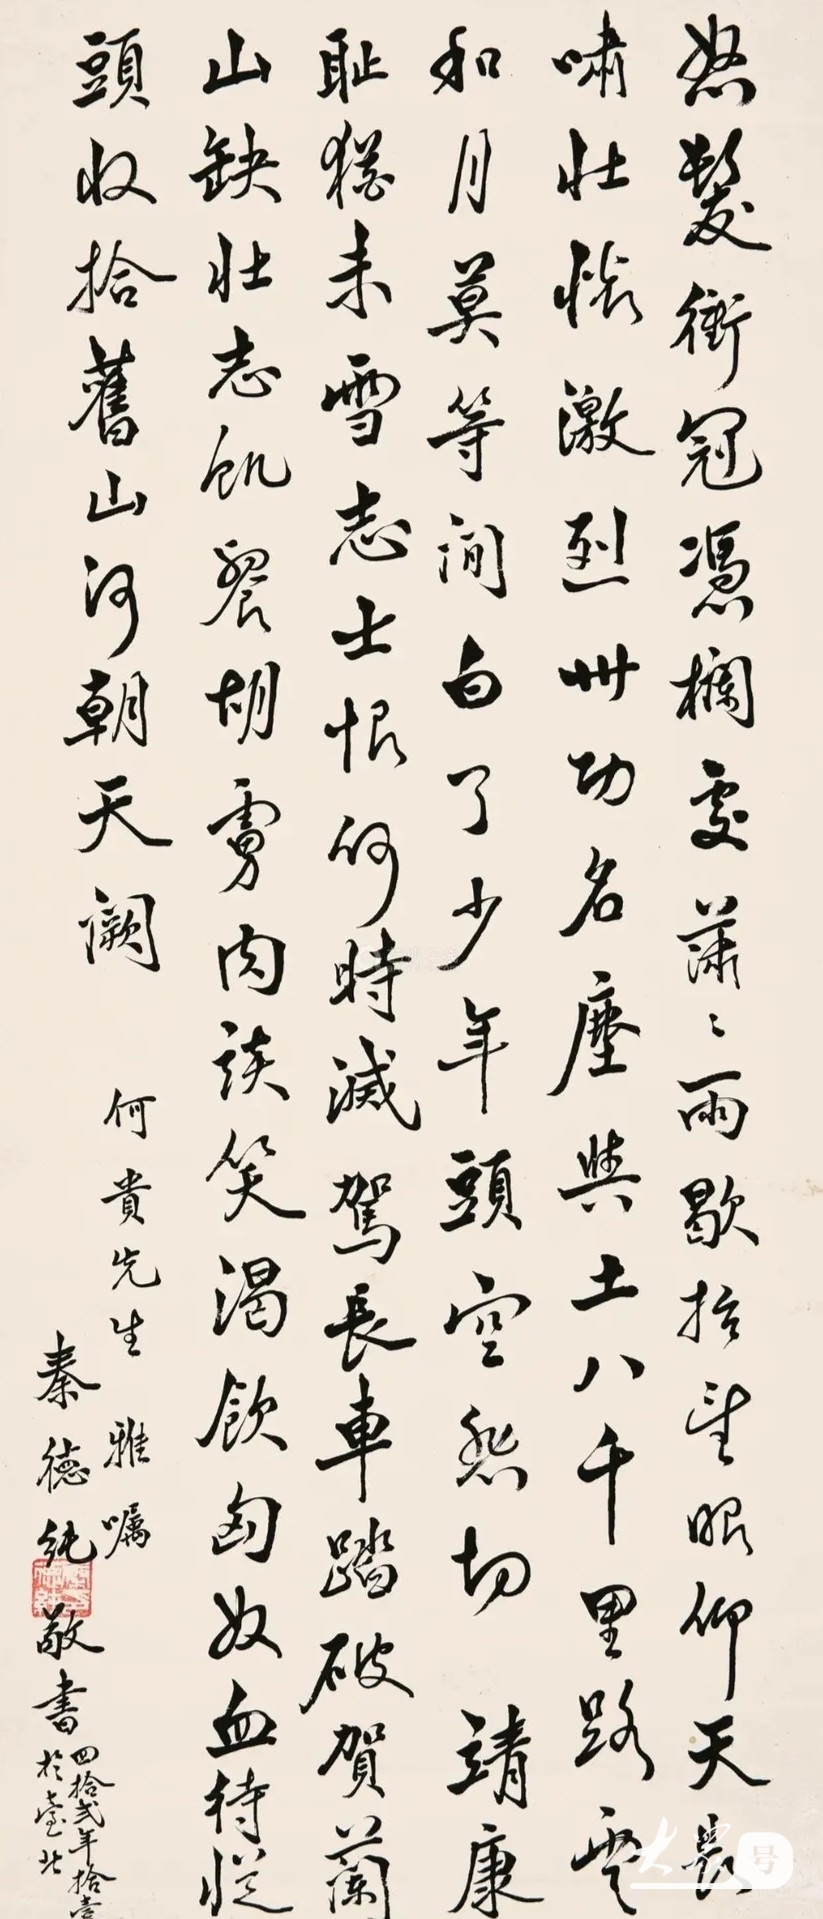 怒髮衝冠憑欄處蕭〻雨歇抬望眼仰天長
嘯壯懷激烈卅功名塵與土八千里路雲
和月莫等閒白了少年頭空悲切 靖康
耻猶未雪志士恨何時滅駕長車踏破賀蘭
山缺壯志飢餐胡虜肉談笑渴飲匈奴血待從
頭收拾舊山河朝天闕
何貴先生 雅囑
秦德純 敬書
四拾弍年拾壹
於臺北
大眾号